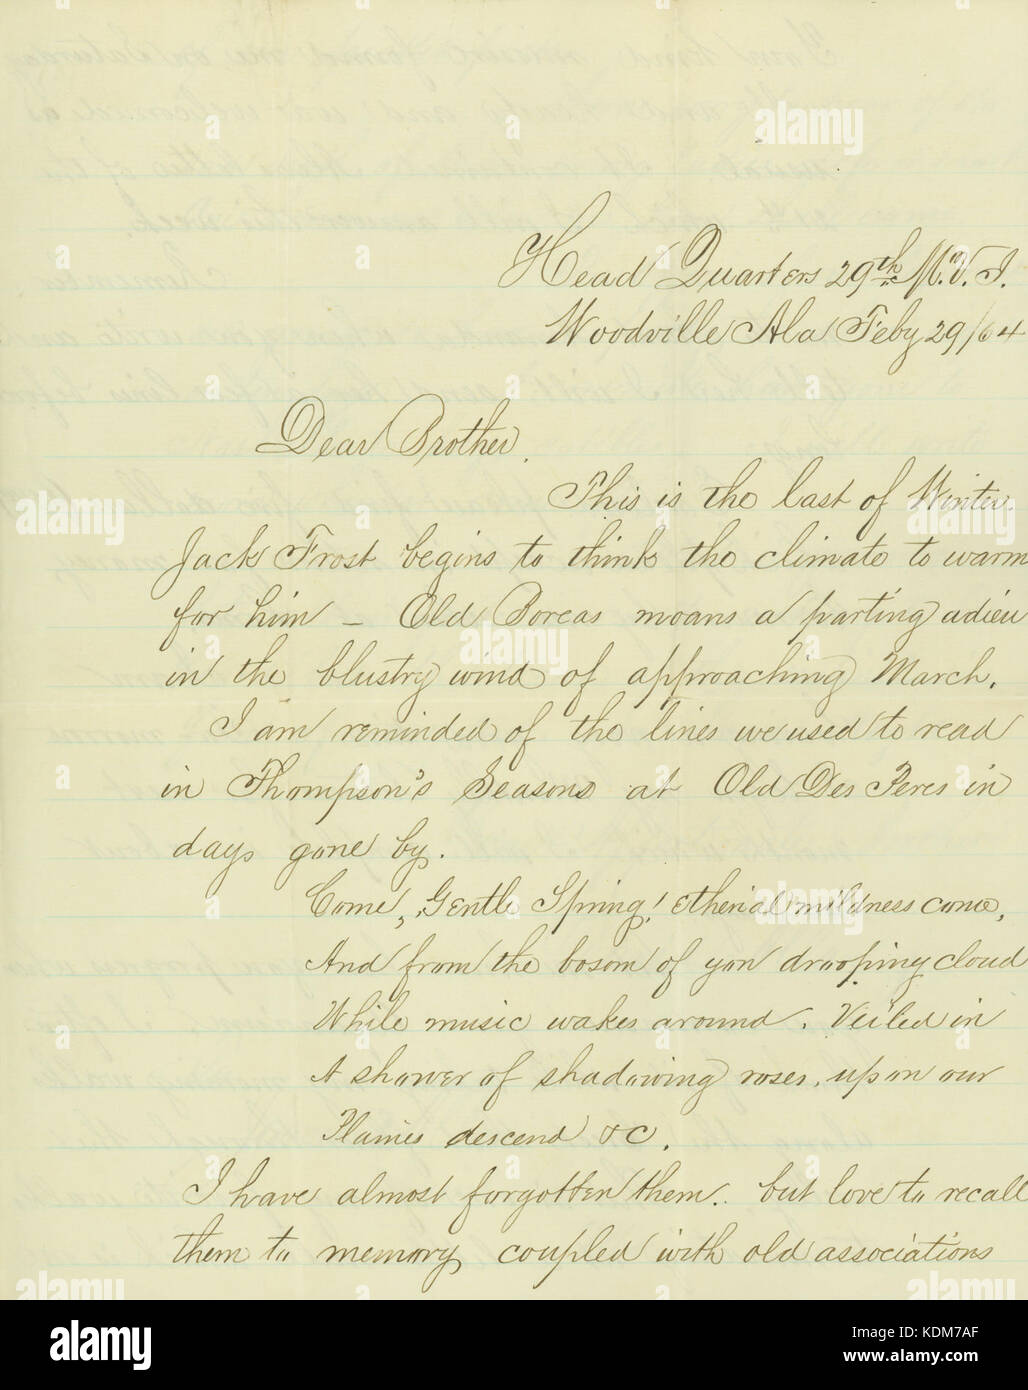 Head Quarters 29th M.V.I.
Woodville Ala Feby 29/64
Dear Brother.
This is the last of Winter.
Jack Frost begins to think the climate to warm
for him – Old Boreas moans a parting adieu
in the blustry wind of approaching March.
I am reminded of the lines we used to read
in Thompson's Seasons at Old Des Peres in
days gone by.
Come, Gentle Spring! Etherial mildness come,
And from the bosom of yon drooping cloud
While music wakes around. Veiled in
A shower of shadowing roses. upon our
Plains descend &C.
I have almost forgotten them. but love to recall
them to memory coupled with old associations
alamy
Image ID: KDM7AF
www.alamy.com